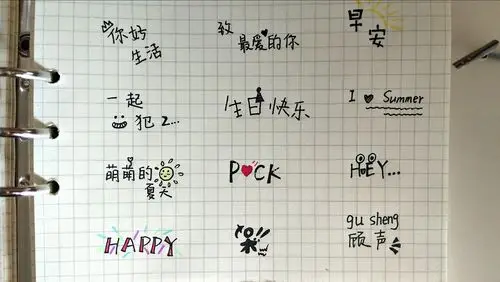 你好
生活
致
最爱的你
早
安
一起
犯2...
生日快乐
I ♥ Summer
萌萌的
夏天
P♥CK
HEY...
HAPPY
gu sheng
顾声